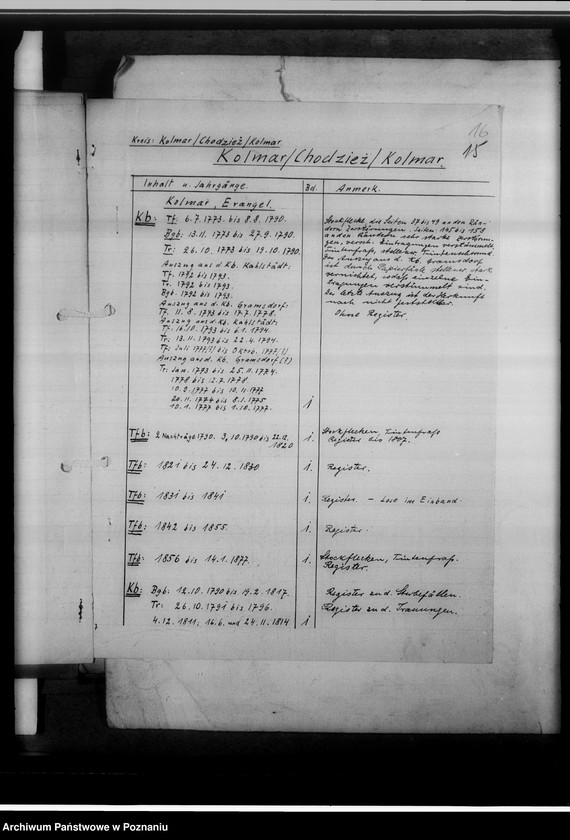 16
15
Kreis: Kolmar/Chodzież/Kolmar
Kolmar/Chodzież/Kolmar.
Inhalt u. Jahrgänge. Bd. Anmerk.
Kolmar, Evangel.
Kb: Tf: 6.7.1773. bis 8.8.1790.
Bgb: 13.11.1773 bis 27.9.1790.
Tr: 26.10.1773 bis 19.10.1790.
Auszug aus d. Kb. Kahlstädt:
Tf. 1792 bis 1793.
Tr. 1792 bis 1793.
Bgb. 1792 bis 1793.
Auszug aus d. Kb. Gramsdorf:
Tf. 11.8.1773 bis 17.7.1778.
Auszug aus d. Kb. Kahlstädt:
Tf. 16.10.1793 bis 6.1.1794.
Tr: 13.11.1793 bis 22.4.1794.
Tf: Juli 1777(?) bis Oktob. 1777(?)
Auszug aus d. Kb. Gramsdorf(?)
Tr: Jan. 1773 bis 25.11.1774.
1778 bis 12.7.1778.
10.2.1777 bis 10.11.1777
20.11.1774 bis 8.1.1775
10.1.1777 bis 1.10.1777. i
Stockflecke die Seiten 37 bis 49 an den Rän-
dern Zerstörungen. Seiten 145 bis 158
an den Rändern sehr starke Zerstörun-
gen, versch. Eintragungen verstümmelt,
Tintenfraß, stellenw. Tintenschwund.
Der Auszug aus d. Kb. Gramsdorf
ist durch stellenw. stark
vernichtet, sodaß einzelne Ein-
tragungen verstümmelt sind.
Der letzte Auszug ist der Herkunft
nach nicht feststellbar.
Ohne Register.
Tfb: 2 Nachträge 1790. 3.10.1790 bis 22.12.
1820 i. Stockflecken, Tintenfraß
Register bis 1807.
Tfb: 1821 bis 24.12.1830 i. Register.
Tfb: 1831 bis 1841 i. Register. – Lose im Einband.
Tfb: 1842 bis 1855. i. Register.
Tfb: 1856 bis 14.1.1877. i. Stockflecken, Tintenfraß.
Register.
Kb: Bgb: 12.10.1790 bis 19.2.1817. Register zu d. Sterbefällen.
Tr: 26.10.1791 bis 1796. Register zu d. Trauungen.
4.12.1811; 16.6. und 24.11.1814 i
Archiwum Państwowe w Poznaniu